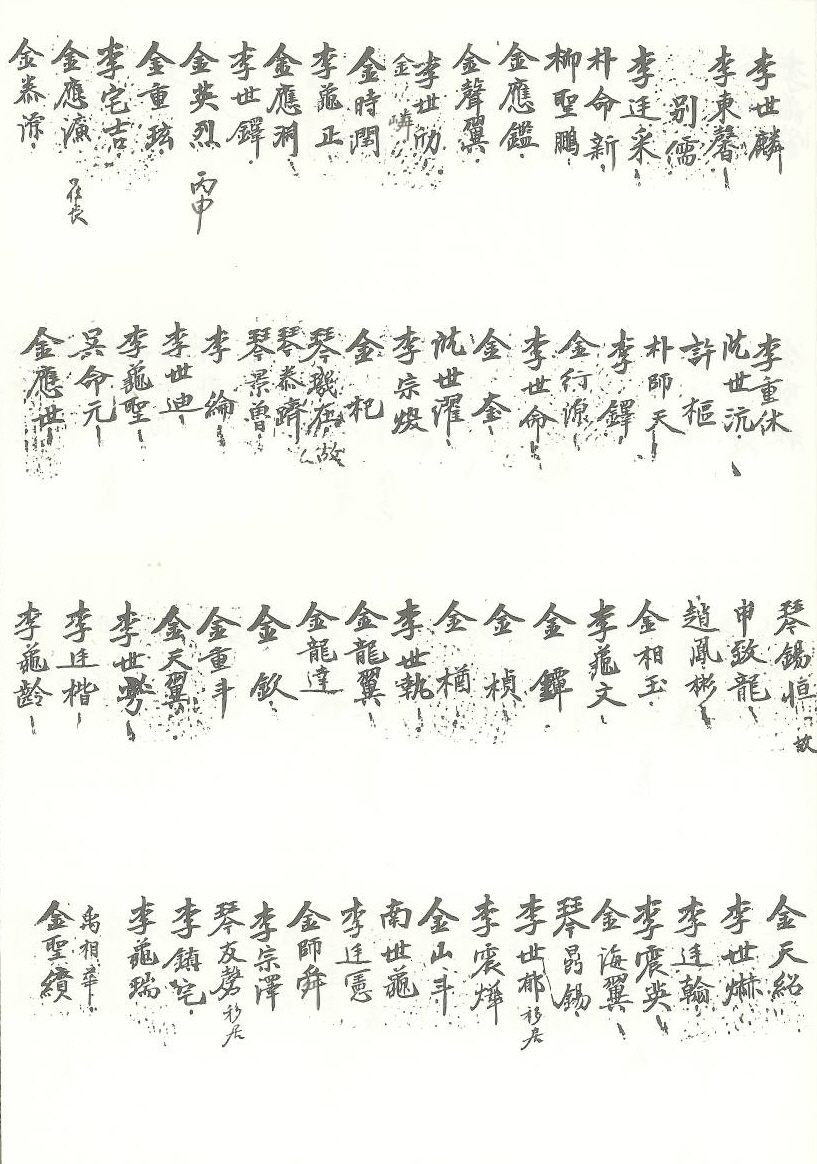 李世麟
李東馨
別儒
李廷采
朴命新
柳聖鵬
金應鑑
金聲翼
李世
金
金時閏
李龜正
金應
李世鐸
金英烈 丙申
金重
李宅吉
金應濂
金泰
李重休
沈世沆
許樞
朴師天
李鐸
金行源
李世命
金奎
沈世濯
李宗
金杞
琴 故
琴泰躋
琴景曾
李綸
李世迪
李龜聖
吳命元
金應世
琴錫恒 故
申致龍
趙鳳彬
金相玉
李龜文
金鐔
金楨
金楢
李世執
金龍翼
金龍達
金欽
金重斗
金天翼
李世
李廷楷
李龜齡
金天紹
李世
李廷翰
李震英
金海翼
琴昜錫
李世郁 移居
李震燁
金山斗
南世龜
李廷憲
金師舜
李宗澤
琴友 移居
李鎮宅
李龜瑞
禹相華
金聖纘